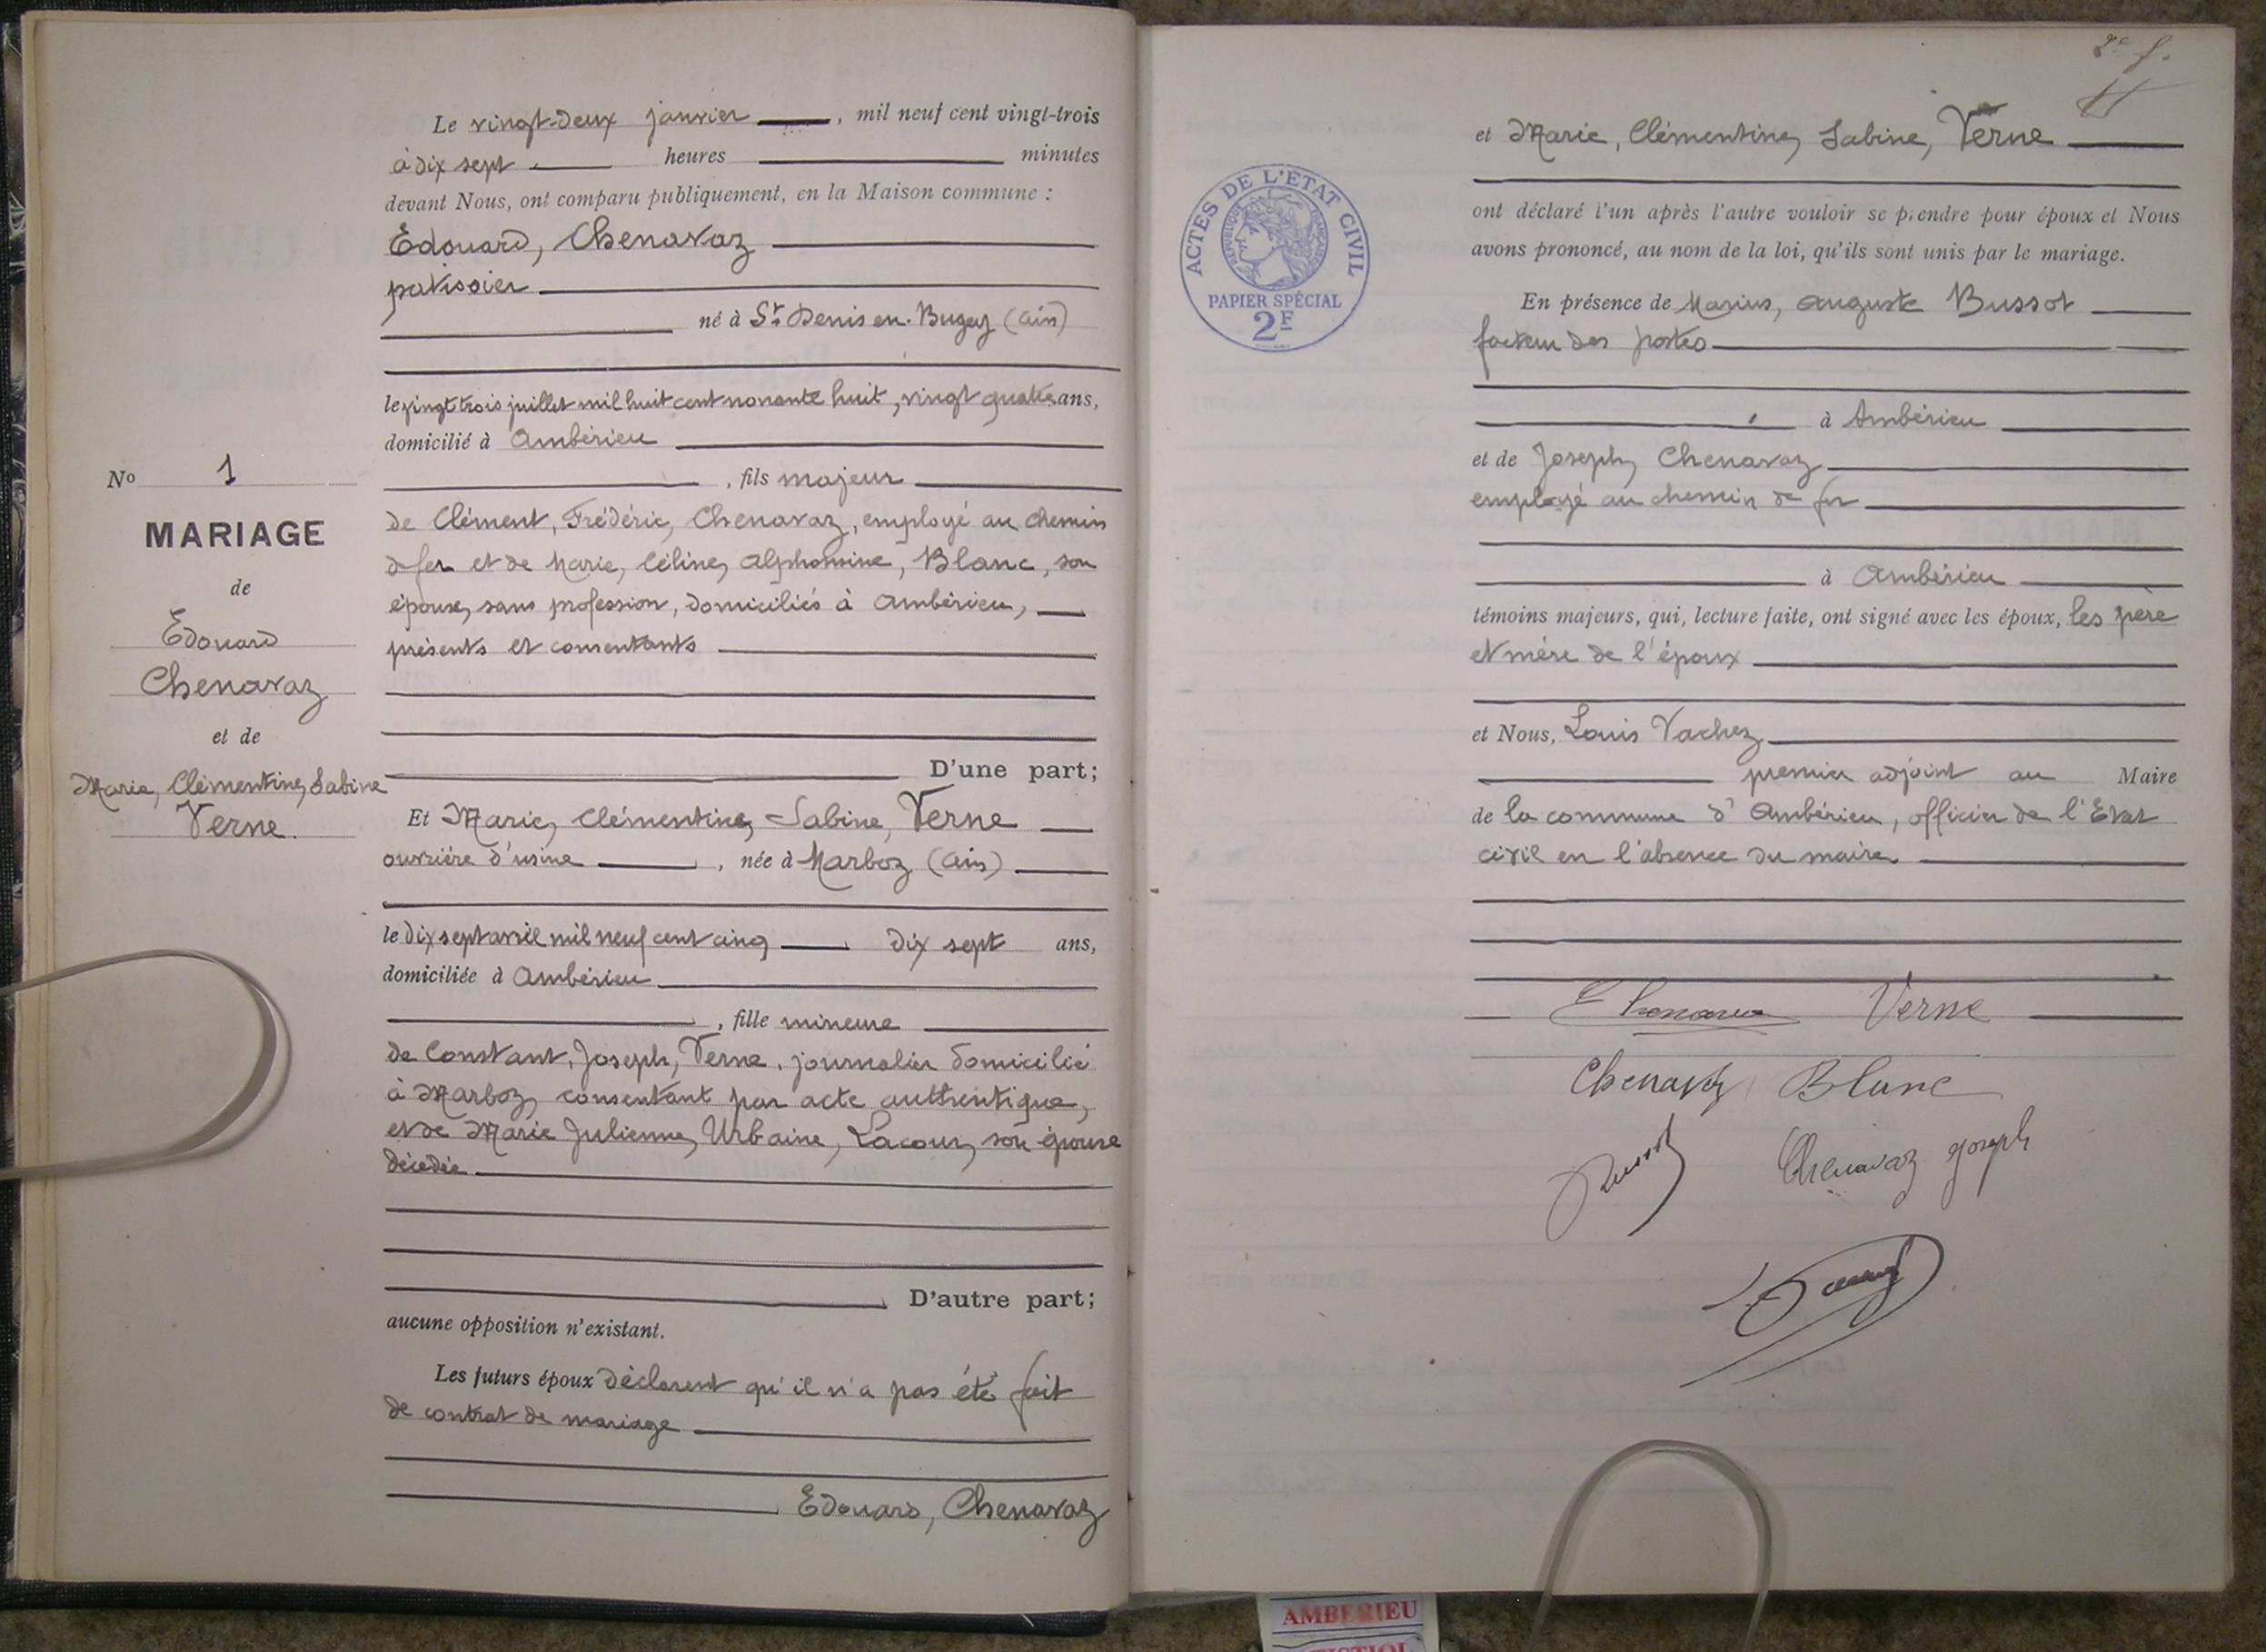 Le vingt-deux janvier, mil neuf cent vingt-trois
à dix sept heures minutes
devant Nous, ont comparu publiquement, en la Maison commune :
Edouard, Chenavaz
patissier
né à St Denis en-Bugey (Ain)
le vingt trois juillet mil huit cent nonante huit, vingt quatre ans,
domicilié à Ambérieu
, fils majeur
de Clément, Frédéric, Chenavaz, employé au chemin
de fer et de Marie, Céline, Alphonsine, Blanc, son
épouse, sans profession, domiciliés à Ambérieu,
présents et consentants
D'une part;
No 1
MARIAGE
de
Edouard
Chenavaz
et de
Marie, Clémentine, Sabine
Verne.
Et Marie, Clémentine, Sabine, Verne
ouvrière d'usine, née à Marboz (Ain)
le dix sept avril mil neuf cent cinq dix sept ans,
domiciliée à Ambérieu
, fille mineure
de Constant, Joseph, Verne, journalier domicilié
à Marboz, consentant par acte authentique,
et de Marie Julienne, Urbaine, Lacour, son épouse
décédée
D'autre part;
aucune opposition n'existant.
Les futurs époux déclarent qu'il n'a pas été fait
de contrat de mariage
Edouard, Chenavaz
2e f.
et Marie, Clémentine, Sabine, Verne
ont déclaré l'un après l'autre vouloir se prendre pour époux et Nous
avons prononcé, au nom de la loi, qu'ils sont unis par le mariage.
En présence de Marius, Auguste Bussot
facteur des postes
à Ambérieu
et de Joseph, Chenavaz
employé au chemin de fer
à Ambérieu
témoins majeurs, qui, lecture faite, ont signé avec les époux, les père
et mère de l'époux
et Nous, Louis Vachez
premier adjoint au Maire
de la commune d'Ambérieu, officier de l'Etat
civil en l'absence du maire
E Chenavaz Verne
Chenavaz Blanc
Bussot Chenavaz Joseph
ACTES DE L'ETAT CIVIL
REPUBLIQUE FRANÇAISE
PAPIER SPÉCIAL
2F
AMBERIEU